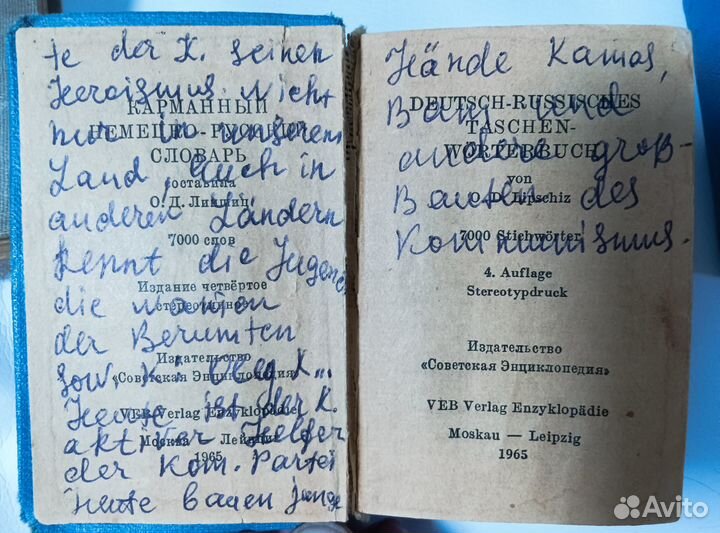 te der K. seinen
Heroismus. Nicht
nur in unserem
Land, auch in
anderen Ländern
kennt die Jugend
die Namen
der Berumten
sow. K.
Heute ist der K.
aktiver Helfer
der Kom. Partei
heute bauen junge
КАРМАННЫЙ
НЕМЕЦКО-РУССКИЙ
СЛОВАРЬ
составила
О. Д. Липшиц
7000 слов
Издание четвёртое
стереотипное
Издательство
«Советская Энциклопедия»
VEB Verlag Enzyklopädie
Москва — Лейпциг
1965
Hände Kamas,
Bam und
andere groß
Bauten des
Kommunismus.
DEUTSCH-RUSSISCHES
TASCHEN-
WÖRTERBUCH
von
O. D. Lipschiz
7000 Stichwörter
4. Auflage
Stereotypdruck
Издательство
«Советская Энциклопедия»
VEB Verlag Enzyklopädie
Moskau — Leipzig
1965
Avito